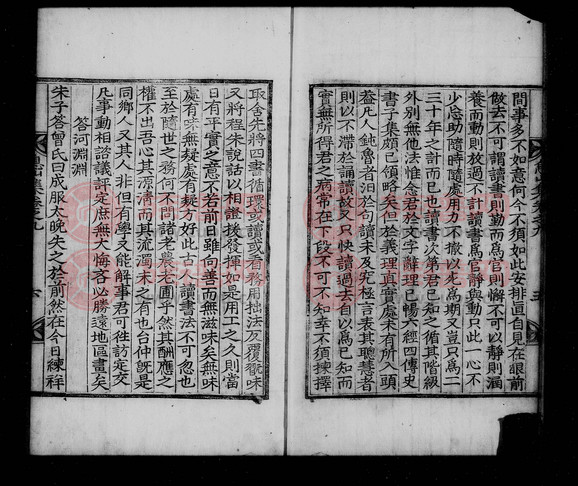 間事多不如意何今不須如此安排直自見在眼前
做去不可謂讀書則勤而爲官則懈不可以靜則涵
養而動則放過不計讀書爲官靜與動只此一心不
少忘助隨時隨處用力不撤以死爲期又豈只爲二
三十年之計而已也讀書次第君已知之循其階級
外別無他法惟念君於文字辭理已暢六經四傳史
書子集頗已領略矣但於義理眞實處未有所入頭
蓋凡人鈍魯者汨於句讀未及究極言表其聰慧者
則以不滯於誦讀故又只快讀過去自以爲已知而
實無所得君之病常在下段不可不知幸不須揀擇
取舍先將四書循環或讀或看務用拙法反覆翫味
又將程朱說話以相證援發揮如是用工之久則當
日有平實之意不若前日雖向善而無滋味矣無味
處有味無疑處有疑方好此古人讀書法不可忽也
至於隨世之務何不問諸老農老圃乎然其酬應之
權不出吾心其源淸而其流濁未之有也台仲旣是
同鄕人又其人非但有學又能解事君可往訪定交
凡事動相咨議評定庶無大悔吝必勝遠地區畫矣
答河淵淵
朱子答曾氏曰成服太晩失之於前然在今日練祥